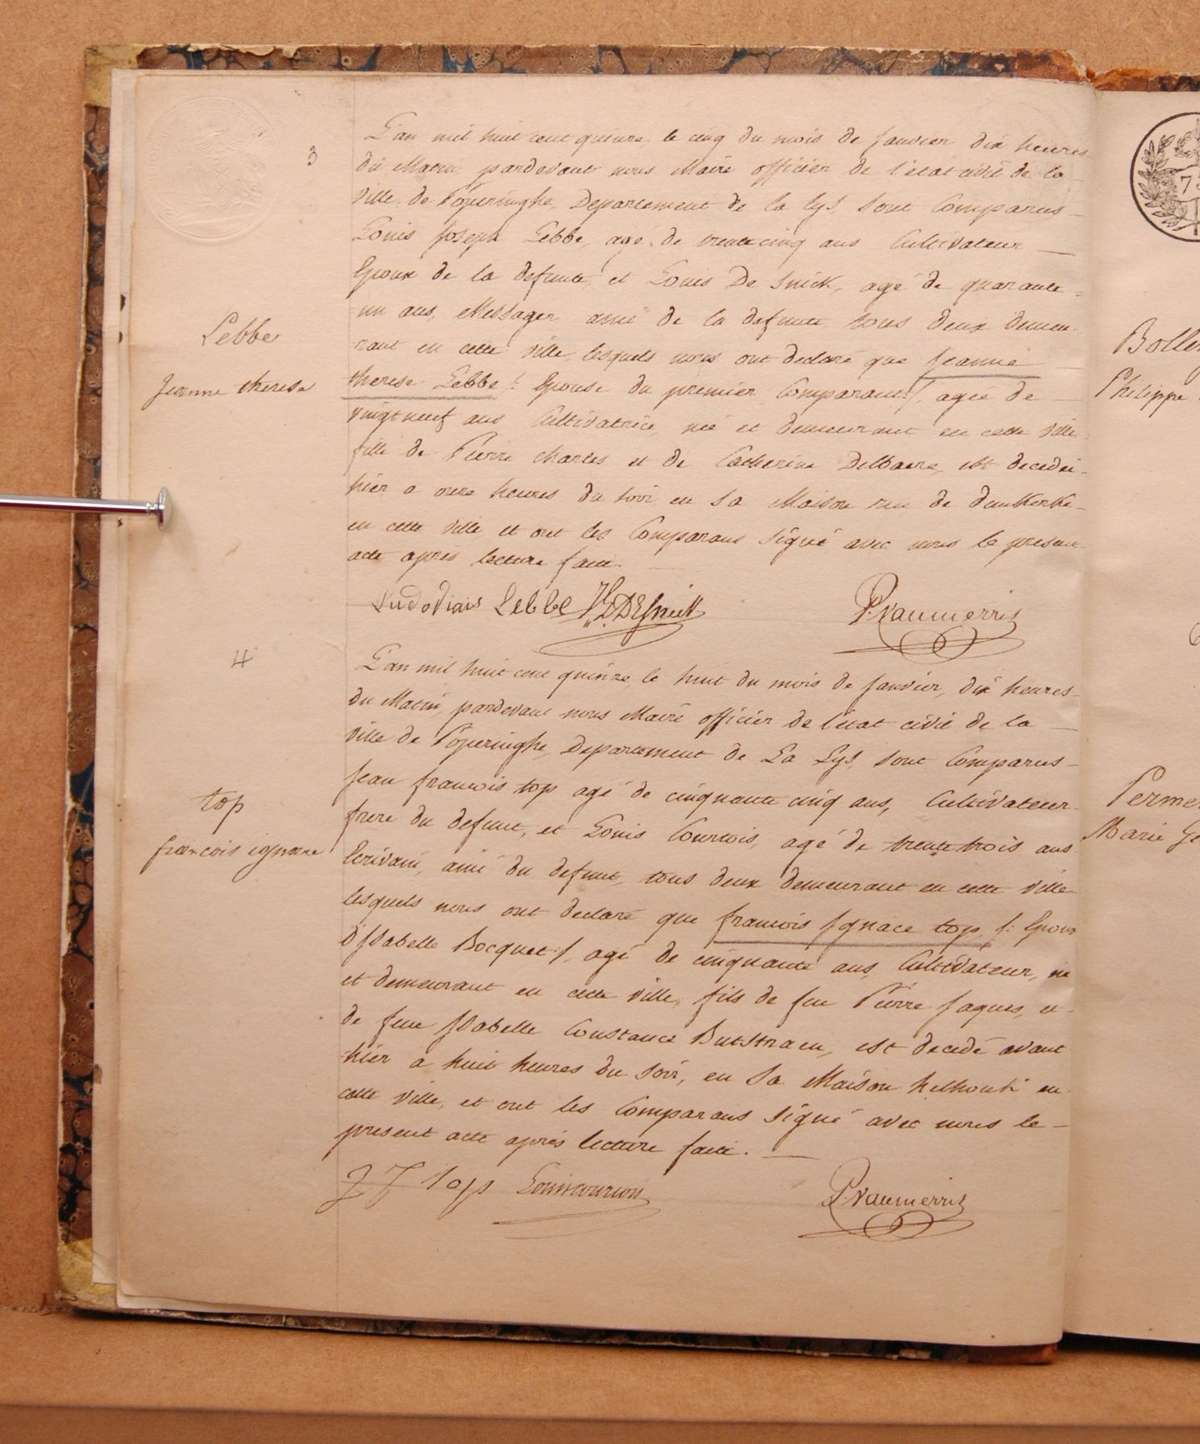 3
L'an mil huit cent quinze le cinq du mois de Janvier dix heures
du Matin, pardevant nous Maire officier de l'état civil de la
ville de Poperinghe, Departement de la Lys, sont Comparus
Louis Joseph Lebbe, agé de trente cinq ans Cultivateur
Epoux de la defunte, et Louis De Snick, agé de quarante
un ans, Messager ami de la defunte tous deux demeu-
rant en cette ville, lesquels nous ont declaré que Jeanne
Lebbe
Jeanne therese
therese Lebbe /: Epouse du premier Comparant :/ agée de
vingt neuf ans Cultivatrice, née et demeurant en cette ville
fille de Pierre Charles et de Catherine Delbaere, est decedée
hier a onze heures du soir en sa Maison rue de dunkerke
en cette ville et ont les Comparans signé avec nous le present
acte après lecture faite.
Lebbe DESnick P. vanmerris
4
L'an mil huit cent quinze le huit du mois de Janvier, dix heures
du Matin, pardevant nous Maire officier de l'état civil de la
ville de Poperinghe, Departement de La Lys, sont Comparus
Jean francois top agé de cinquante cinq ans, Cultivateur
frere du defunt, et Louis Courtois, agé de trente trois ans
top
francois ignace
Ecrivain, ami du defunt, tous deux demeurant en cette ville
lesquels nous ont declaré que francois Ignace top /: Epoux
d'Isabelle Bocquet :/ agé de cinquante ans, Cultivateur, né
et demeurant en cette ville, fils de feu Pierre Jaques, et
de feue Isabelle Constance Butstraen, est decedé avant
hier a huit heures du soir, en sa Maison helhouk en
cette ville, et ont les Comparans signé avec nous le
present acte après lecture faite.
J F Top Louis courtois P. vanmerris
Philippe
Marie